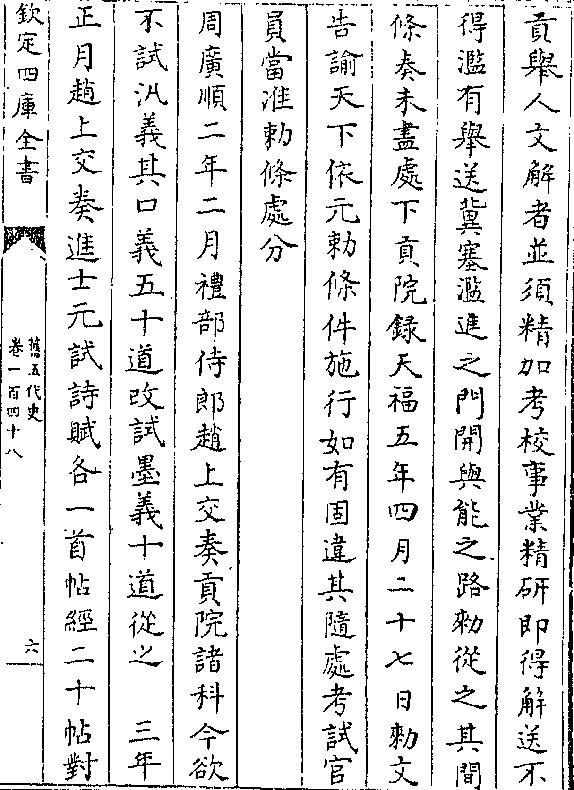 貢舉人文解者並須精加考校事業精研即得解送不
得濫有舉送冀塞濫進之門開與能之路勅從之其間
條奏未盡處下貢院錄天福五年四月二十七日勅文
告諭天下依元勅條件施行如有固違其隨處考試官
員當准勅條處分
周廣順二年二月禮部侍郎趙上交奏貢院諸科今欲
不試汎義其口義五十道改試墨義十道從之　三年
正月趙上交奏進士元試詩賦各一首帖經二十帖對
欽定四庫全書
舊五代史
卷一百四十八
六